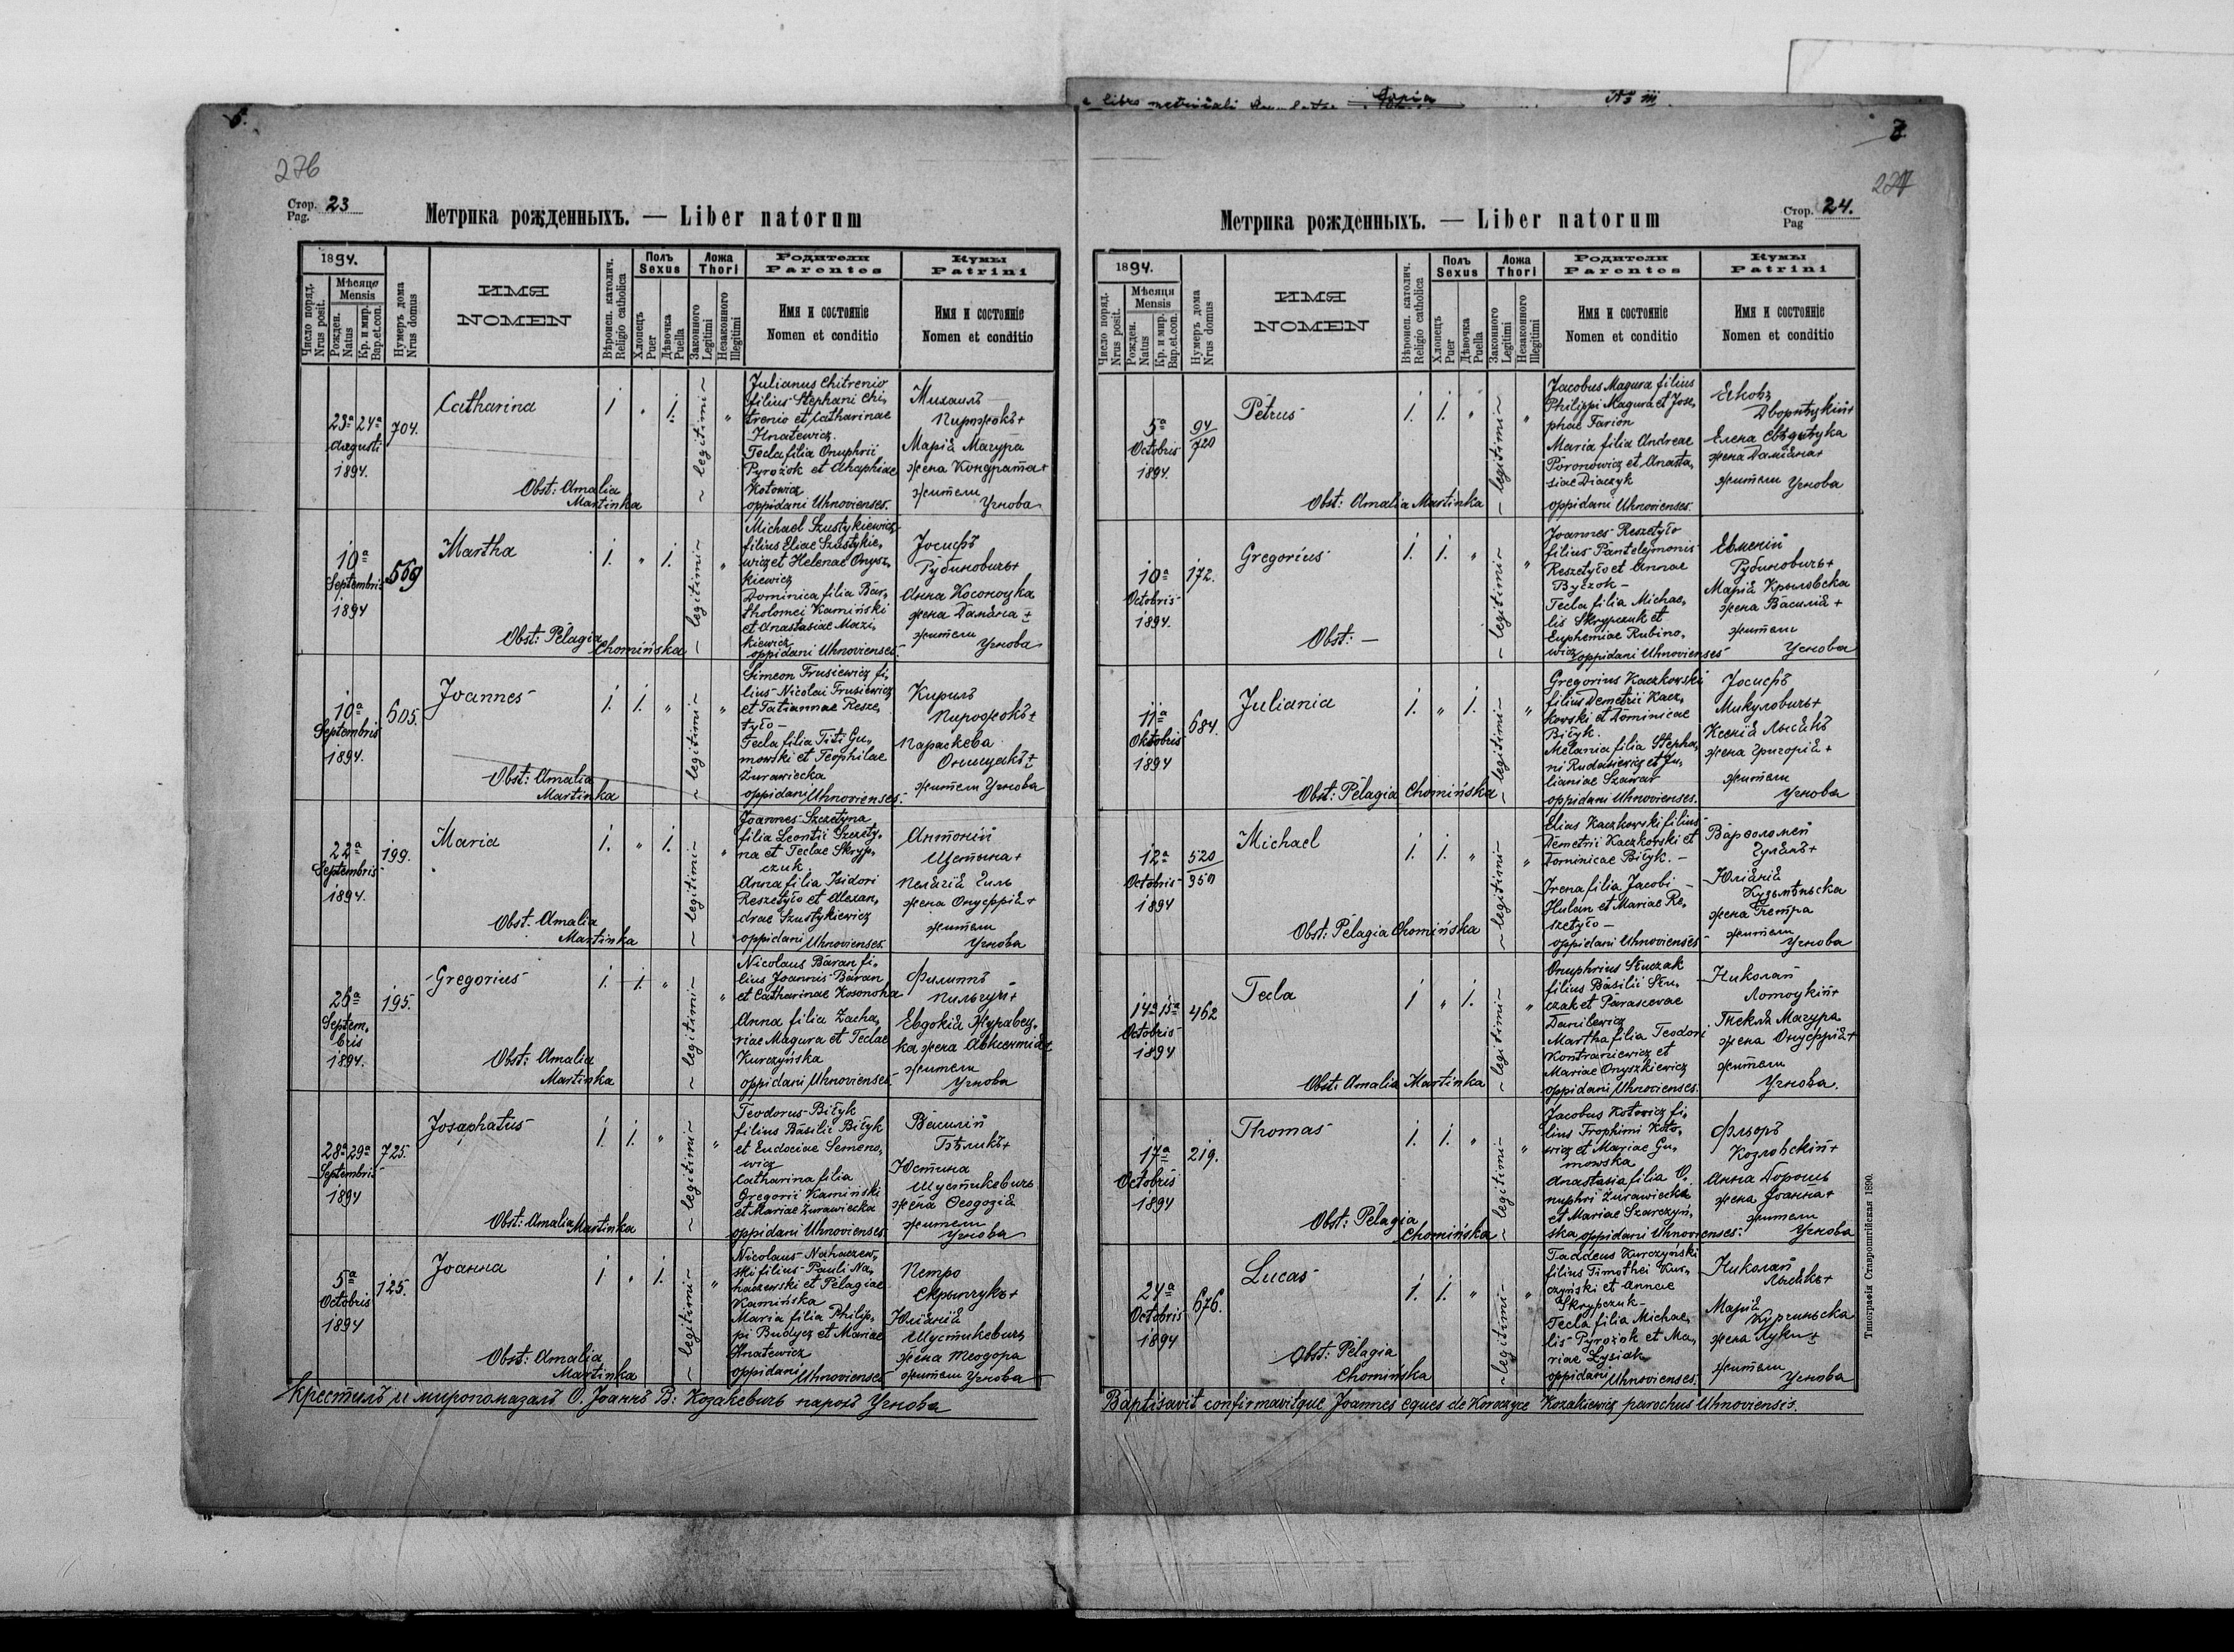 6.
276
Стор. 23
Pag.
Метрика рожденныхъ. — Liber natorum
1894.
Число поряд.
Nrus posit.
Мѣсяця
Mensis
Рожден.
Natus
Кр. и мир.
Bap. et. con.
Нумеръ дома
Nrus domus
ИМЯ
NOMEN
Вѣроисп. католич.
Religio catholica
Полъ
Sexus
Хлопецъ
Puer
Дѣвочка
Puella
Ложа
Thori
Законного
Legitimi
Незаконного
Illegitimi
Родители
Parentes
Имя и состояніе
Nomen et conditio
Кумы
Patrini
Имя и состояніе
Nomen et conditio
23ª 24ª
Augusti
1894.
704.
Catharina
1 " 1.
~ legitimi ~
"
Obst: Amalia
Martinka
Julianus Chitrenio
filius Stephani Chi,
trenio et Catharinae
Hnatewicz.
Tecla filia Onuphrii
Pyrożok et Ahaphiae
Kotowicz
oppidani Uhnovienses.
Михаилъ
Пирожокъ+
Марія Магура
жена Кондрата+
жители
Угнова
10ª
Septembris
1894
569
Martha
1. " 1.
~ legitimi ~
"
Obst: Pelagia
Chomińska
Michael Szustykiewicz
filius Eliae Szustykie,
wicz et Helenae Onysz,
kiewicz
Dominica filia Bar,
tholomei Kamiński
et Anastasiae Mazi,
kiewicz
oppidani Uhnovienses.
Іосифъ
Рубиновичъ+
Анна Косоноцка
жена Даміана+
жители
Угнова
10ª
Septembris
1894.
605.
Joannes
1. 1. "
~ legitimi ~
"
Obst: Amalia
Martinka
Simeon Trusiewicz fi,
lius Nicolai Trusiewicz
et Tatiannae Resze,
tyło —
Tecla filia Titi Gu,
mowski et Teophilae
Żurawiecka
oppidani Uhnovienses.
Кирилъ
Пирожокъ+
Параскева
Онищакъ+
жители Угнова
22ª
Septembris
1894.
199.
Maria
1. " 1.
~ legitimi ~
"
Obst. Amalia
Martinka
Joannes Szczetyna
filia Leontii Szczety,
na et Teclae Skryp,
czuk.
Anna filia Isidori
Reszetyło et Alexan,
drae Szustykiewicz
oppidani Uhnovienses.
Антоній
Щетина+
Пелагія Гиль
жена Онуфрія+
жители
Угнова
26ª
Septem,
bris
1894.
195.
Gregorius
1. 1. "
~ legitimi ~
"
Obst: Amalia
Martinka
Nicolaus Baran fi,
lius Joannis Baran
et Catharinae Kosonoha
Anna filia Zacha,
riae Magura et Teclae
Kurczyńska
oppidani Uhnovienses
Филиппъ
Пильгуй+
Евдокія Журавец,
ка жена Авксентія+
жители
Угнова
28ª 29ª
Septembris
1894
725.
Josaphatus
1. 1. "
~ legitimi ~
"
Obst: Amalia Martinka
Teodorus Biłyk
filius Basilii Biłyk
et Eudociae Semeno,
wicz
Catharina filia
Gregorii Kamiński
et Mariae Żurawiecka
oppidani Uhnovienses.
Василій
Бѣликъ+
Юстина
Шустикевичъ
жена Ѳеодозія
жители
Угнова
5ª
Octobris
1894
125.
Joанна
1. " 1.
~ legitimi ~
"
Obst: Amalia
Martinka
Nicolaus Nahaczew,
ski filius Pauli Na,
haczewski et Pelagiae
Kamińska
Maria filia Philip,
pi Budycz et Mariae
Hnatewicz
oppidani Uhnovienses
Петро
Скрыпчукъ+
Юліанія
Шустикевичъ
жена Теодора
жители Угнова
Крестилъ и миропомазалъ О. Іоаннъ В: Козакевичъ парохъ Угнова
Copia
№ III
7
Стор. 24.
Pag
Метрика рожденныхъ. — Liber natorum
1894.
Число поряд.
Nrus posit.
Мѣсяця
Mensis
Рожден.
Natus
Кр. и мир.
Bap. et. con.
Нумеръ дома
Nrus domus
ИМЯ
NOMEN
Вѣроисп. католич.
Religio catholica
Полъ
Sexus
Хлопецъ
Puer
Дѣвочка
Puella
Ложа
Thori
Законного
Legitimi
Незаконного
Illegitimi
Родители
Parentes
Имя и состояніе
Nomen et conditio
Кумы
Patrini
Имя и состояніе
Nomen et conditio
5ª
Octobris
1894.
94
720
Petrus
1. 1. "
~ legitimi ~
"
Obst: Amalia Martinka
Jacobus Magura filius
Philippi Magura et Jose,
phae Farion
Maria filia Andreae
Poronowicz et Anasta,
siae Diaczyk
oppidani Uhnovienses.
Яковъ
Дворицкій+
Елена
жена Даміана+
жители Угнова
10ª
Octobris
1894.
172.
Gregorius
1. 1. "
~ legitimi ~
"
Obst: —
Joannes Reszetyło
filius Pantelejmonis
Reszetyło et Annae
Byczok —
Tecla filia Michae,
lis Skrypczuk et
Euphemiae Rubino,
wicz oppidani Uhnovienses
Евменій
Рубиновичъ+
Марія Крыловска
жена Василія+
жители
Угнова
11ª
Oktobris
1894
684.
Juliania
1. " 1.
~ legitimi ~
"
Obst: Pelagia Chomińska
Gregorius Kaczkowski
filius Demetrii Kacz,
kowski et Dominicae
Biłyk.
Melania filia Stepha,
ni Rudasiewicz et Ju,
lianiae Szawar
oppidani Uhnovienses.
Іосифъ
Микуловичъ+
Ксенія Лысакъ
жена Григорія+
жители
Угнова
12ª
Octobris
1894
520
350
Michael
1. 1. "
~ legitimi ~
"
Obst: Pelagia Chomińska
Elias Kaczkowski filius
Demetrii Kaczkowski et
Dominicae Biłyk. —
Irena filia Jacobi
Hulan et Mariae Re,
szetyło —
oppidani Uhnovienses
Варѳоломей
Гуланъ+
Юліанія
жена Петра
жители
Угнова
14ª 15ª
Octobris
1894
462
Tecla
1 " 1.
~ legitimi ~
"
Obst: Amalia Martinka
Onuphrius Stuczak
filius Basilii Stu,
czak et Parascevae
Danilewicz
Martha filia Teodori
Kontraniewicz et
Mariae Onyszkiewicz
oppidani Uhnovienses.
Николай
Лотоцкій+
Текля Магура
жена Онуфрія+
жители
Угнова.
17ª
Octobris
1894
219.
Thomas
1. 1. "
~ legitimi ~
"
Obst: Pelagia
Chomińska
Jacobus Kotowicz fi,
lius Trophimi Koto,
wicz et Mariae Gu,
mowska
Anastasia filia O,
nuphri Żurawiecka
et Mariae Szarczyń,
ska oppidani Uhnovienses.
Фльоръ
Козловскій+
Анна Дорошъ
жена Іоанна+
жители
Угнова
24ª
Octobris
1894
676.
Lucas
1. 1. "
~ legitimi ~
"
Obst: Pelagia
Chomińska
Taddeus Kurczyński
filius Timothei Kur,
czyński et Annae
Skrypczuk —
Tecla filia Michae,
lis Pyrożok et Ma,
riae Łysiak
oppidani Uhnovienses.
Николай
Лысакъ+
Марія
Курчиньска
жена Луки+
жители
Угнова
Baptisavit confirmavitque Joannes eques de Koroczyce Kozakiewicz parochus Uhnoviensis.
Типографія Ставропигійская 1890.